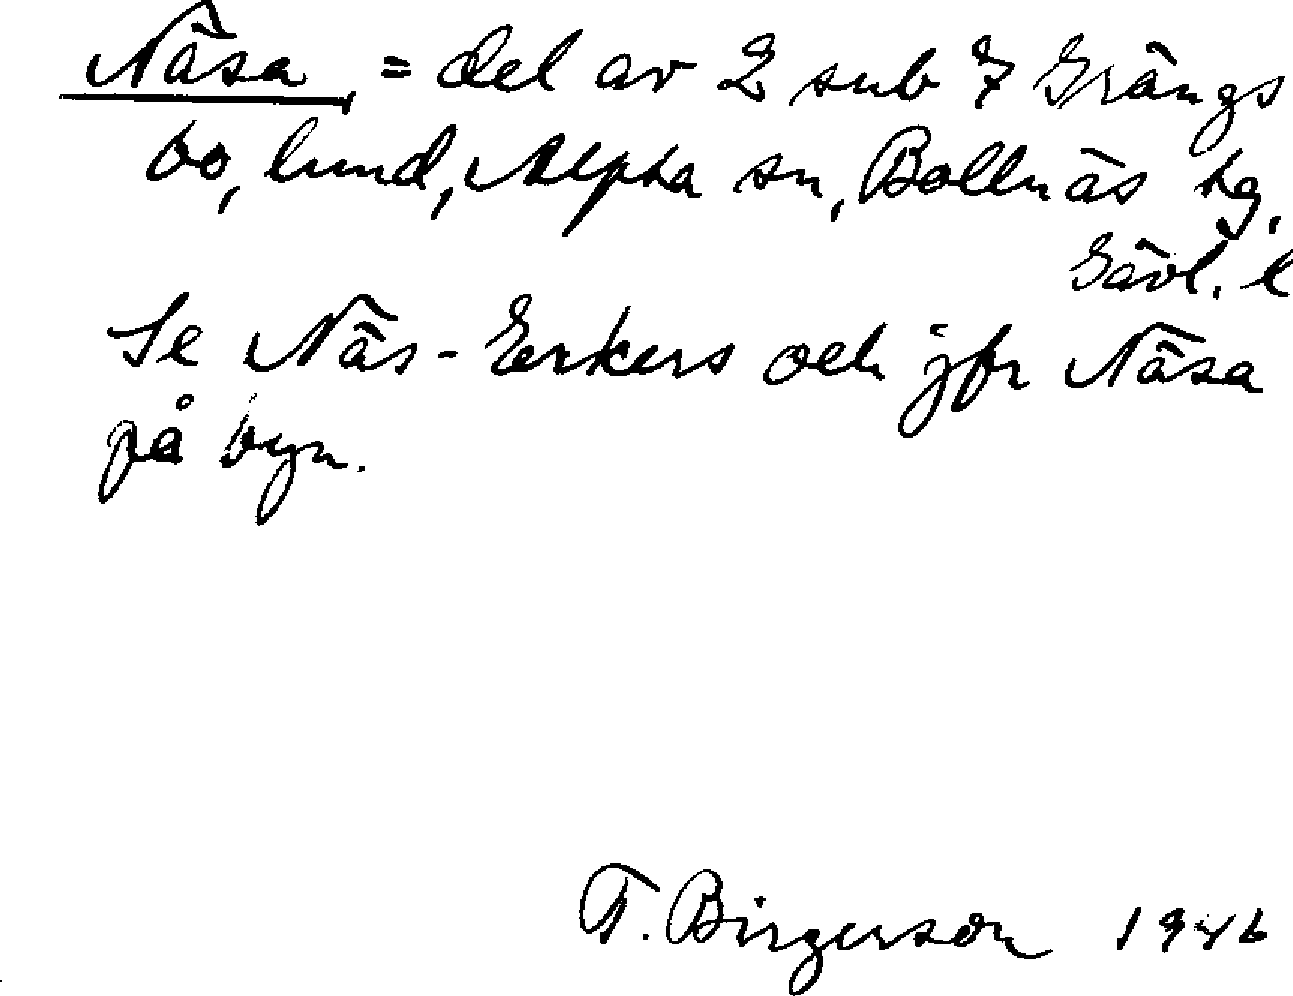 Näsa, = del av 2 sub 7 Grängs
bo, lund, Alpha sn, Bollnäs tg,
Gävl. l
Se Näs-Erkers och jfr Näsa
på byn.
T. Birgerson 1946